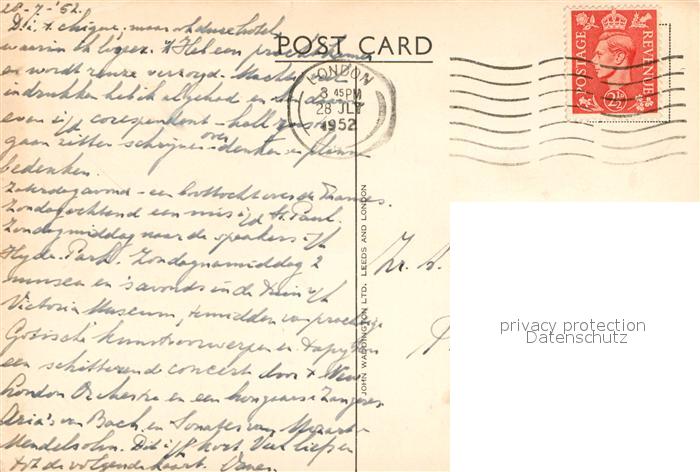 28-7-'52.
Dit is 't chique, maar oh dure hotel
waarin ik logeer. 't Heb een prachtkamer
en word reuze verzorgd. Machtige
indrukken heb ik al gehad en
even i/d corespondent-hall
gaan zitten schrijven over
denken en
bedenken.
Zaterdagavond - een boottocht over de Thames.
Zondagochtend een mis i/d St. Paul.
Zondagmiddag naar de speakers i/h
Hyde-Park. Zondagnamiddag 2
musea en 's avonds in de tuin v/h
Victoria Museum, temidden van prachtige
Gotische kunstvoorwerpen en tapijten
een schitterende concert door 't New
London Orchestra en een hongaarse Zangeres
Aria's van Bach, en Sonates van Mozart
Mendelsohn. Dit i/h kort. Veel liefs en
tot de volgende kaart.
POST CARD
LONDON
3 45PM
28 JLY
1952
POSTAGE
REVENUE
2½D
JOHN WADDINGTON LTD. LEEDS AND LONDON
privacy protection
Datenschutz